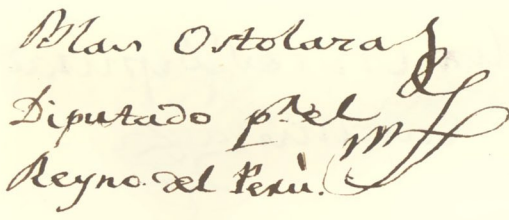 Blas Ostolara
Diputado pr. el
Reyno del Perù.